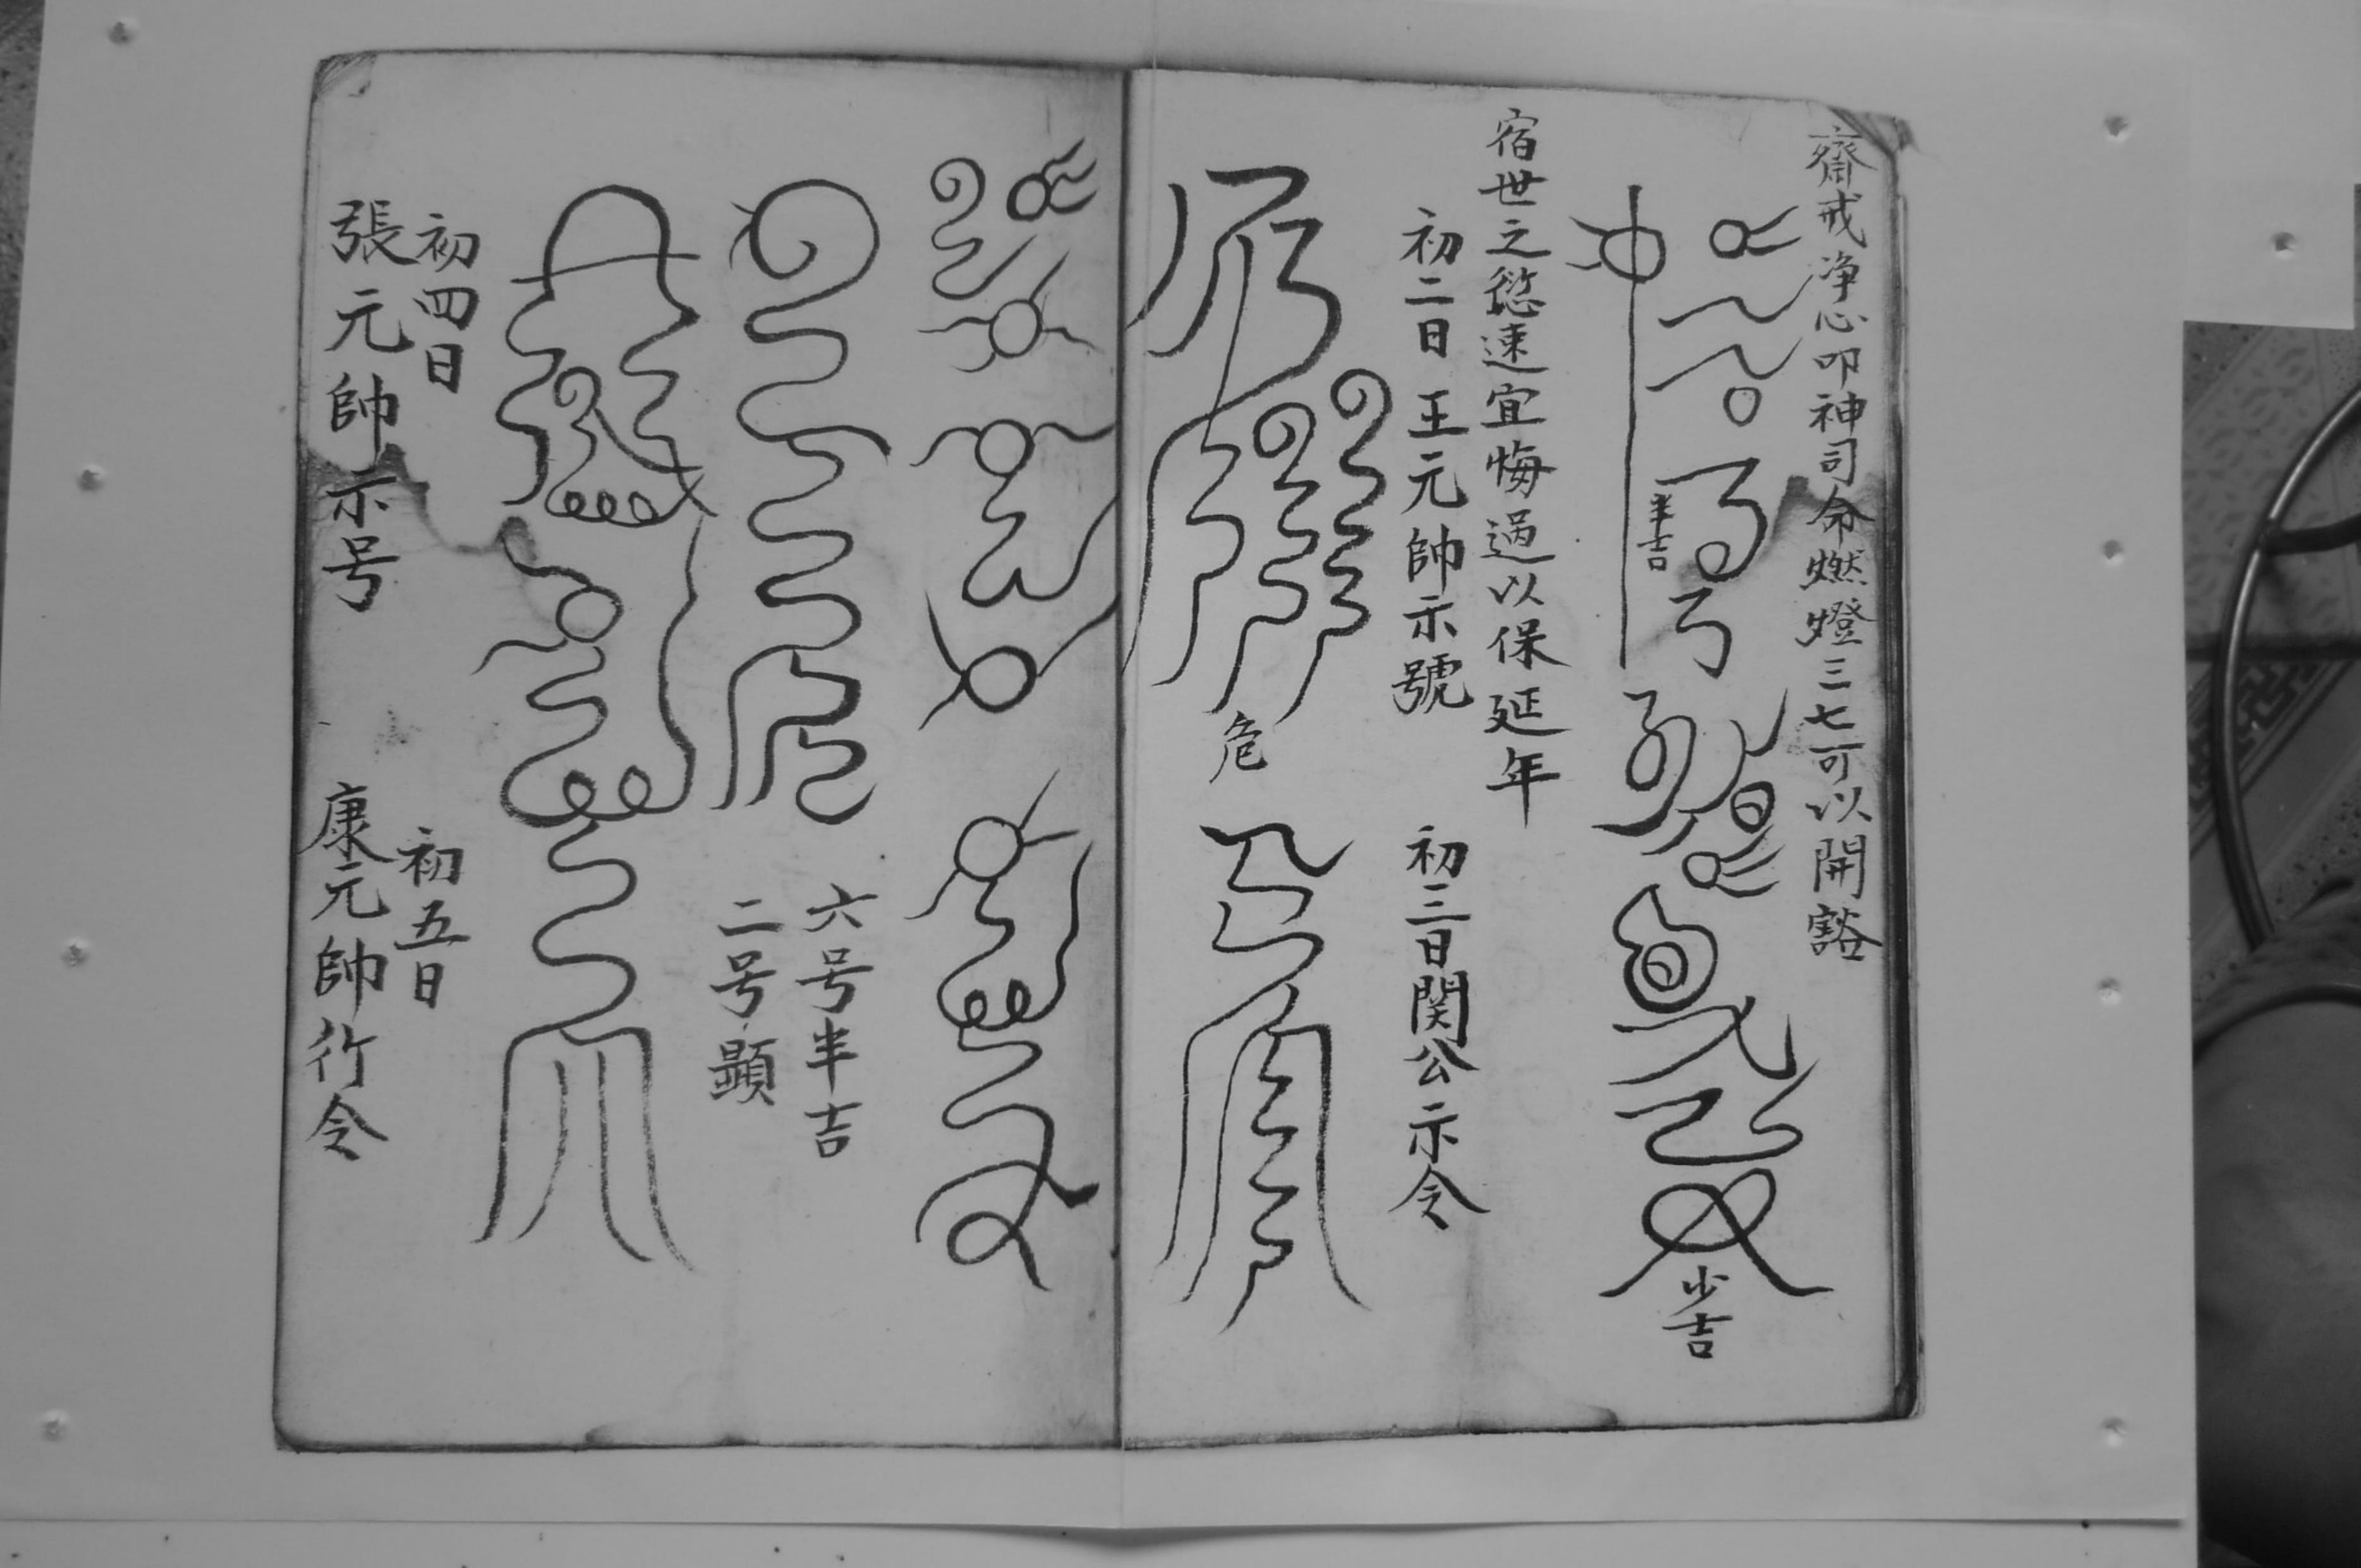 齋戒净心叩神司命燃燈三七可以開豁
半吉
少吉
宿世之愆速宜悔過以保延年
初二日王元帥示號
初三日関公示令
危
六号半吉
二号顕
初四日
張元帥示号
初五日
康元帥行令